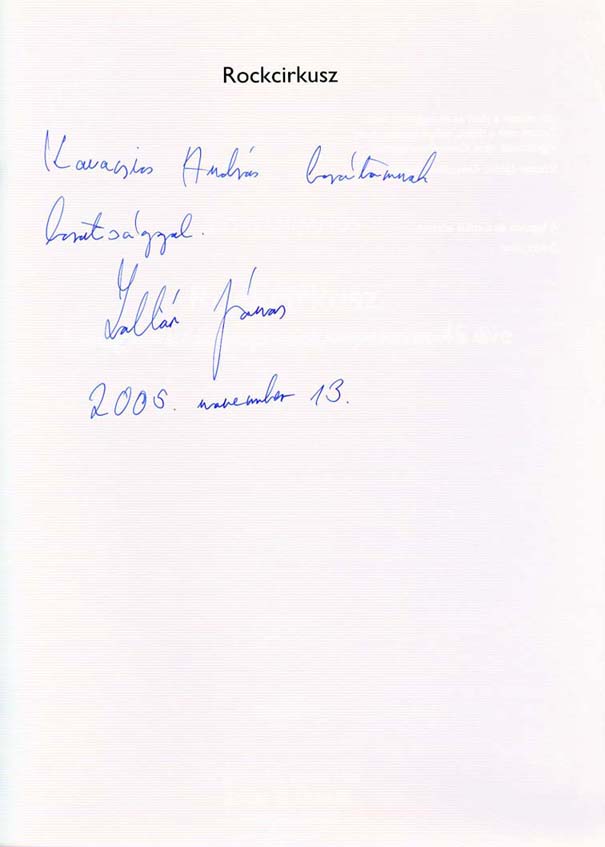 Rockcirkusz
Kovacsics András barátomnak
barátsággal.
Zoltán János
2005. november 13.